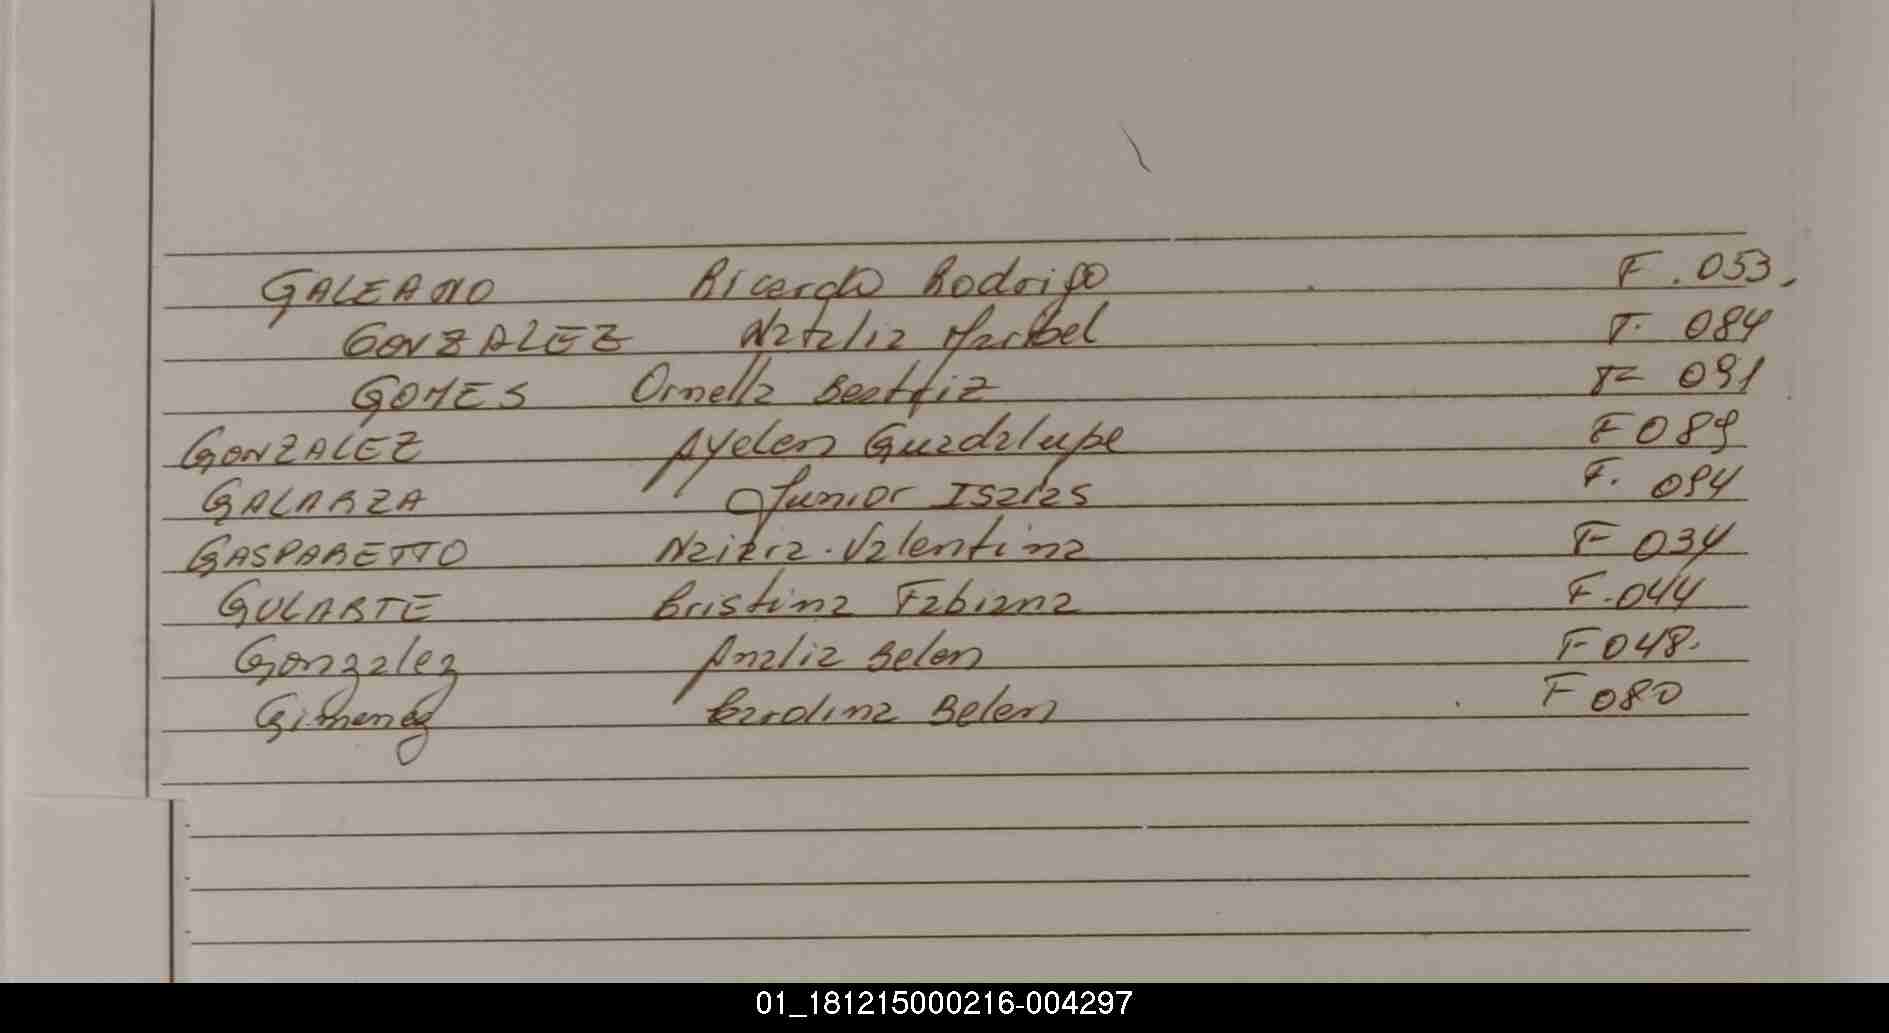 GALEANO Ricardo Rodrigo F. 053.
GONZALEZ Natalia Maribel F. 084
GOMES Ornella Beatriz F 091
GONZALEZ Ayelen Guadalupe F 089
GALARZA Junior Isaias F. 094
GASPARETTO Valentina F 034
GULARTE Cristina Fabiana F. 044
Gonzalez Analia Belen F 048.
Gimenez Carolina Belen F 080
01_181215000216-004297